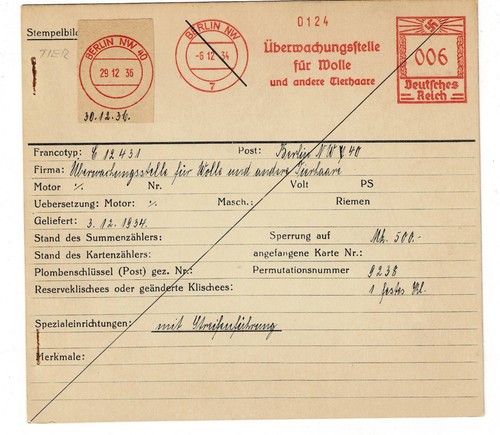 Stempelbild
TIER
BERLIN NW 40
29 12 36
30.12.36.
BERLIN NW
-6 12 34
7
0124
Überwachungsstelle
für Wolle
und andere Tierhaare
006
Deutsches
Reich
Francotyp: C 12431 Post: Berlin N W 7 40
Firma: Überwachungsstelle für Wolle und andere Tierhaare
Motor ./. Nr. Volt PS
Uebersetzung: Motor: ./. Masch.: Riemen
Geliefert: 3. 12. 1934.
Stand des Summenzählers: Sperrung auf Mk. 500.-
Stand des Kartenzählers: angefangene Karte Nr.:
Plombenschlüssel (Post) gez. Nr.: Permutationsnummer 9238
Reserveklischees oder geänderte Klischees: 1 festes Kl.
Spezialeinrichtungen: mit Streifenführung
Merkmale: